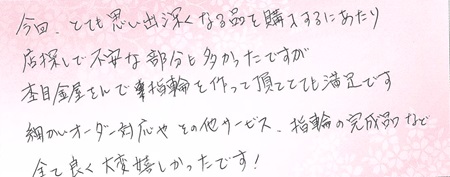 今回、とても思い出深くなる品を購入するにあたり
店探しで不安な部分も多かったですが
杢目金屋さんで指輪を作って頂てとても満足です
細かいオーダー対応やその他サービス、指輪の完成品など
全て良く大変嬉しかったです!